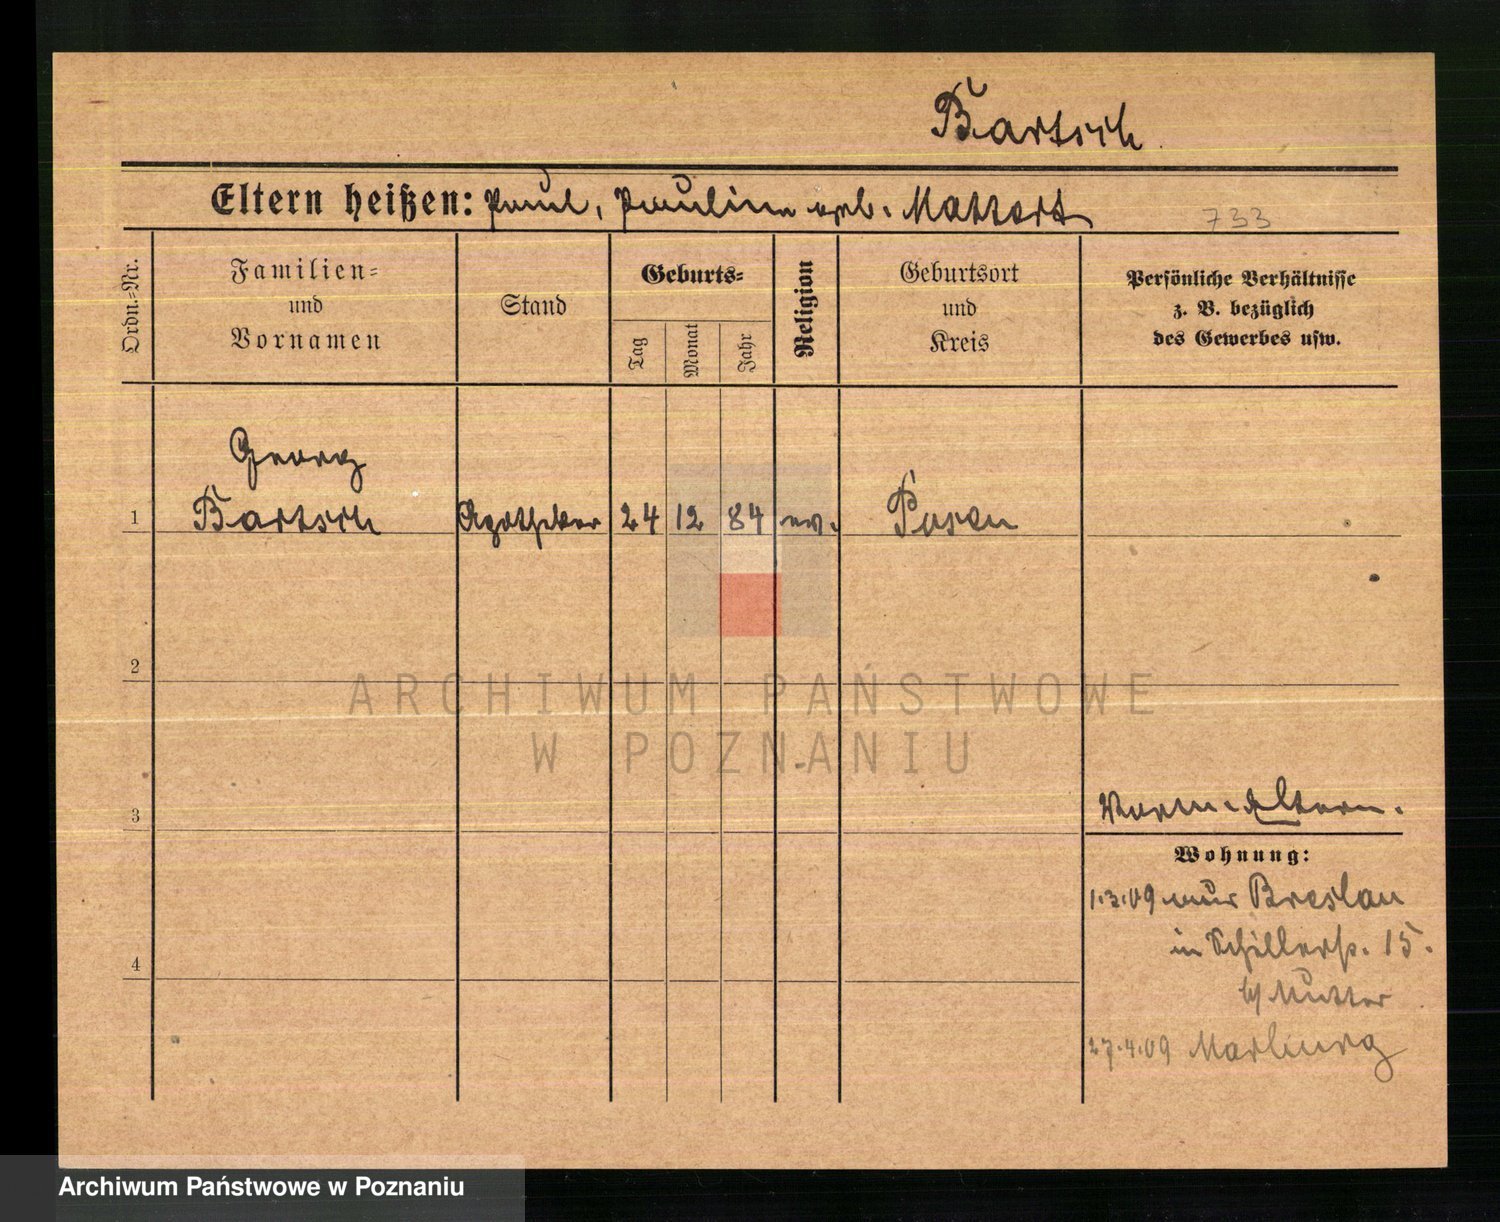 Bartsch
Eltern heißen: Paul, Pauline geb. Mattert
733
Ordn.-Nr.
Familien- und Vornamen
Stand
Geburts-
Tag
Monat
Jahr
Religion
Geburtsort und Kreis
Persönliche Verhältnisse
z. B. bezüglich
des Gewerbes usw.
Georg
1 Bartsch Apotheker 24 12 84 ev. Posen
2
ARCHIWUM PAŃSTWOWE
W POZNANIU
3
Eltern.
Wohnung:
1.3.09 aus Breslau
in Schillerstr. 15.
b/ Mutter
4
27.4.09 Marburg
Archiwum Państwowe w Poznaniu